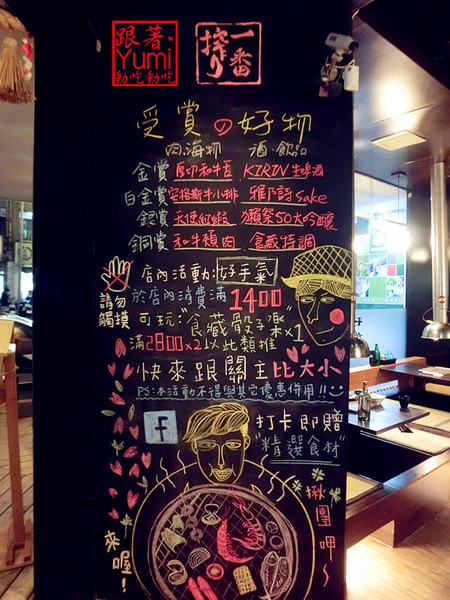 跟著
Yumi
動吃動吃
一番
搾り
受賞の好物
肉.海物 酒.飲品
金賞 厚切和牛舌 KIRIN生啤酒
白金賞 安格斯牛小排 雅乃詩Sake
銀賞 天使紅蝦 獺祭50大吟釀
銅賞 和牛頰肉 食藏特調
請勿
觸摸
店內活動:好手氣
於店內消費滿1400
可玩"食藏骰子樂"×1
滿2800×2以此類推
快來跟關主比大小
PS:本活動不得與其它優惠併用!!
f
打卡即贈
"精選食材"
揪團呷~
來喔!